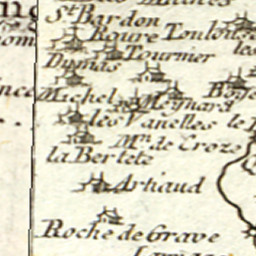 St. Bardon
Roure Toulouse
les
Tournier
Dumas
Michel Meynard
les Vanelles le
Mn. de Croze
la Bertete
Arhaud
Roche de Grave